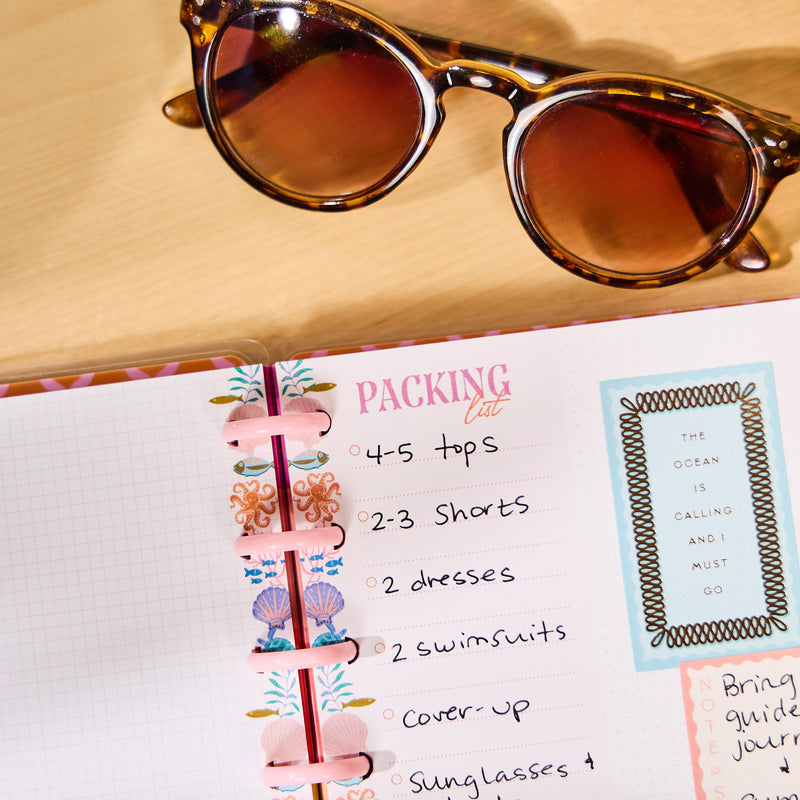 PACKING
list
4-5 tops
2-3 Shorts
2 dresses
2 swimsuits
cover-up
Sunglasses &
THE
OCEAN
IS
CALLING
AND I
MUST
GO
NOTE
Bring
guide
journ
&